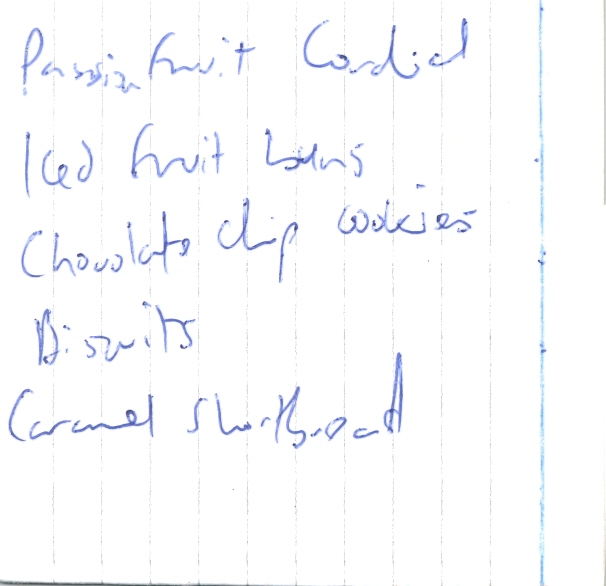 Passionfruit Cordial
Iced fruit buns
Chocolate chip cookies
Biscuits
Caramel shortbread